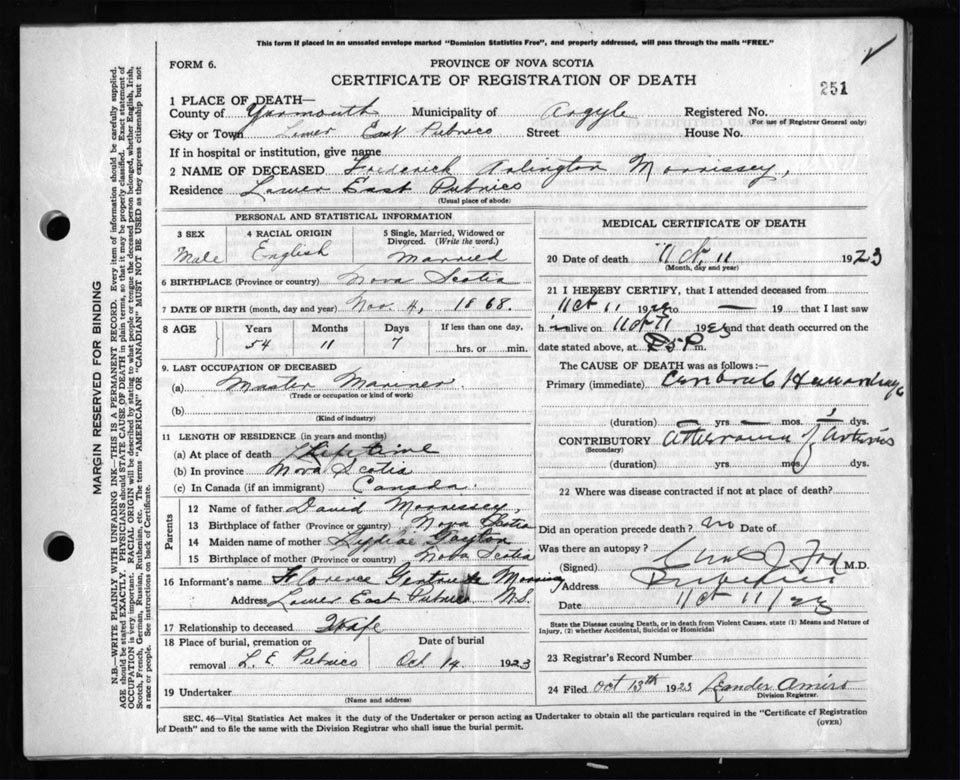 This form if placed in an unsealed envelope marked "Dominion Statistics Free", and properly addressed, will pass through the mails "FREE."
FORM 6.
PROVINCE OF NOVA SCOTIA
CERTIFICATE OF REGISTRATION OF DEATH
251
1 PLACE OF DEATH—
County of Yarmouth Municipality of Argyle Registered No.
(For use of Registrar General only)
City or Town Lower East Pubnico Street House No.
If in hospital or institution, give name
2 NAME OF DECEASED Frederick Arlington Morrissey,
Residence Lower East Pubnico
(Usual place of abode)
PERSONAL AND STATISTICAL INFORMATION
3 SEX Male
4 RACIAL ORIGIN English
5 Single, Married, Widowed or Divorced. (Write the word.) Married
6 BIRTHPLACE (Province or country) Nova Scotia
7 DATE OF BIRTH (month, day and year) Nov. 4, 1868.
8 AGE Years Months Days If less than one day,
54 11 7 hrs. or min.
9. LAST OCCUPATION OF DECEASED
(a) Master Mariner
(Trade or occupation or kind of work)
(b)
(Kind of industry)
11 LENGTH OF RESIDENCE (in years and months)
(a) At place of death Lifetime
(b) In province Nova Scotia
(c) In Canada (if an immigrant) Canada.
Parents
12 Name of father David Morrissey,
13 Birthplace of father (Province or country) Nova Scotia
14 Maiden name of mother Lydiae Gayton
15 Birthplace of mother (Province or country) Nova Scotia
16 Informant's name Florence Gertrude Morrissey
Address Lower East Pubnico N.S.
17 Relationship to deceased Wife
18 Place of burial, cremation or removal L. E. Pubnico
Date of burial Oct. 14 1923
19 Undertaker
(Name and address)
MEDICAL CERTIFICATE OF DEATH
20 Date of death Oct. 11 1923
(Month, day and year)
21 I HEREBY CERTIFY, that I attended deceased from
Oct 11 1923 to — 19 that I last saw
h im alive on Oct 11 1923 and that death occurred on
date stated above, at P m.
The CAUSE OF DEATH was as follows:—
Primary (immediate) Cerebral Hemorrhage
(duration) — yrs. — mos. 1 dys.
CONTRIBUTORY Atheroma of Arteries
(Secondary)
(duration) yrs mos. dys.
22 Where was disease contracted if not at place of death?
Did an operation precede death? no Date of
Was there an autopsy?
(Signed) J Fox M.D.
Address Pubnico
Date Oct 11/23
State the Disease causing Death, or in death from Violent Causes, state (1) Means and Nature of Injury, (2) whether Accidental, Suicidal or Homicidal
23 Registrar's Record Number
24 Filed Oct 13th 1923 Leander Amiro
Division Registrar.
SEC. 46—Vital Statistics Act makes it the duty of the Undertaker or person acting as Undertaker to obtain all the particulars required in the "Certificate of Registration
of Death" and to file the same with the Division Registrar who shall issue the burial permit.
(OVER)
MARGIN RESERVED FOR BINDING
N.B.—WRITE PLAINLY WITH UNFADING INK—THIS IS A PERMANENT RECORD. Every item of information should be carefully supplied.
AGE should be stated EXACTLY. PHYSICIANS should STATE CAUSE OF DEATH in plain terms, so that it may be properly classified. Exact statement of
OCCUPATION is very important. RACIAL ORIGIN will be described by stating to what people or tongue the deceased person belonged, whether English, Irish,
Scotch, French, German, Russian, Ruthenian, etc. The terms "AMERICAN" OR "CANADIAN" MUST NOT BE USED as they express citizenship but not
a race or people. See instructions on back of Certificate.